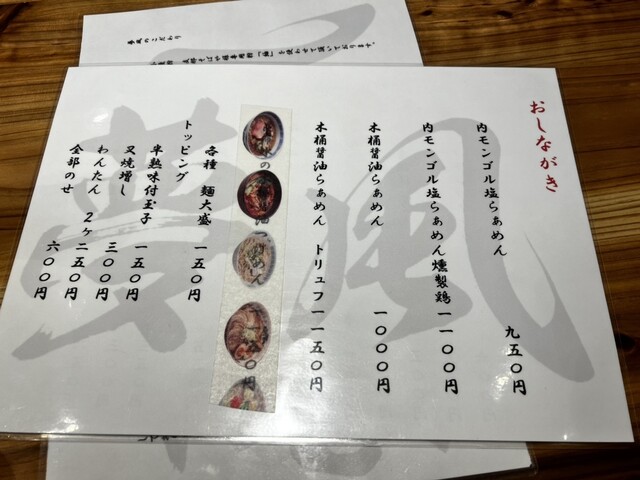 おしながき
内モンゴル塩らぁめん 九五〇円
内モンゴル塩らぁめん燻製鶏 一一〇〇円
木桶醤油らぁめん 一〇〇〇円
木桶醤油らぁめん トリュフ 一一五〇円
の
油
〇円
トッピング
各種 麺大盛 一五〇円
半熟味付玉子 一五〇円
叉焼増し 三〇〇円
わんたん 2ヶ 二五〇円
全部のせ 六〇〇円
夢風
夢風のこだわり